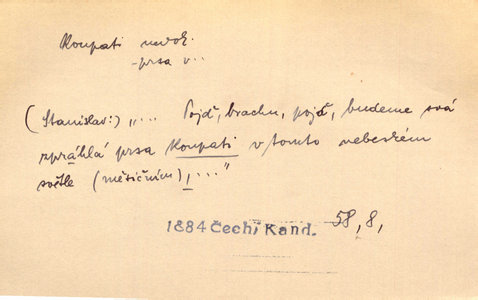 Koupati nevok.
-prsa v..
(Stanislav:) „... Pojď, brachu, pojď, budeme svá
zpráhlá prsa koupati v tomto nebeském
světle (měsíčním), ..."
1884 Čech, Kand. 58, 8,